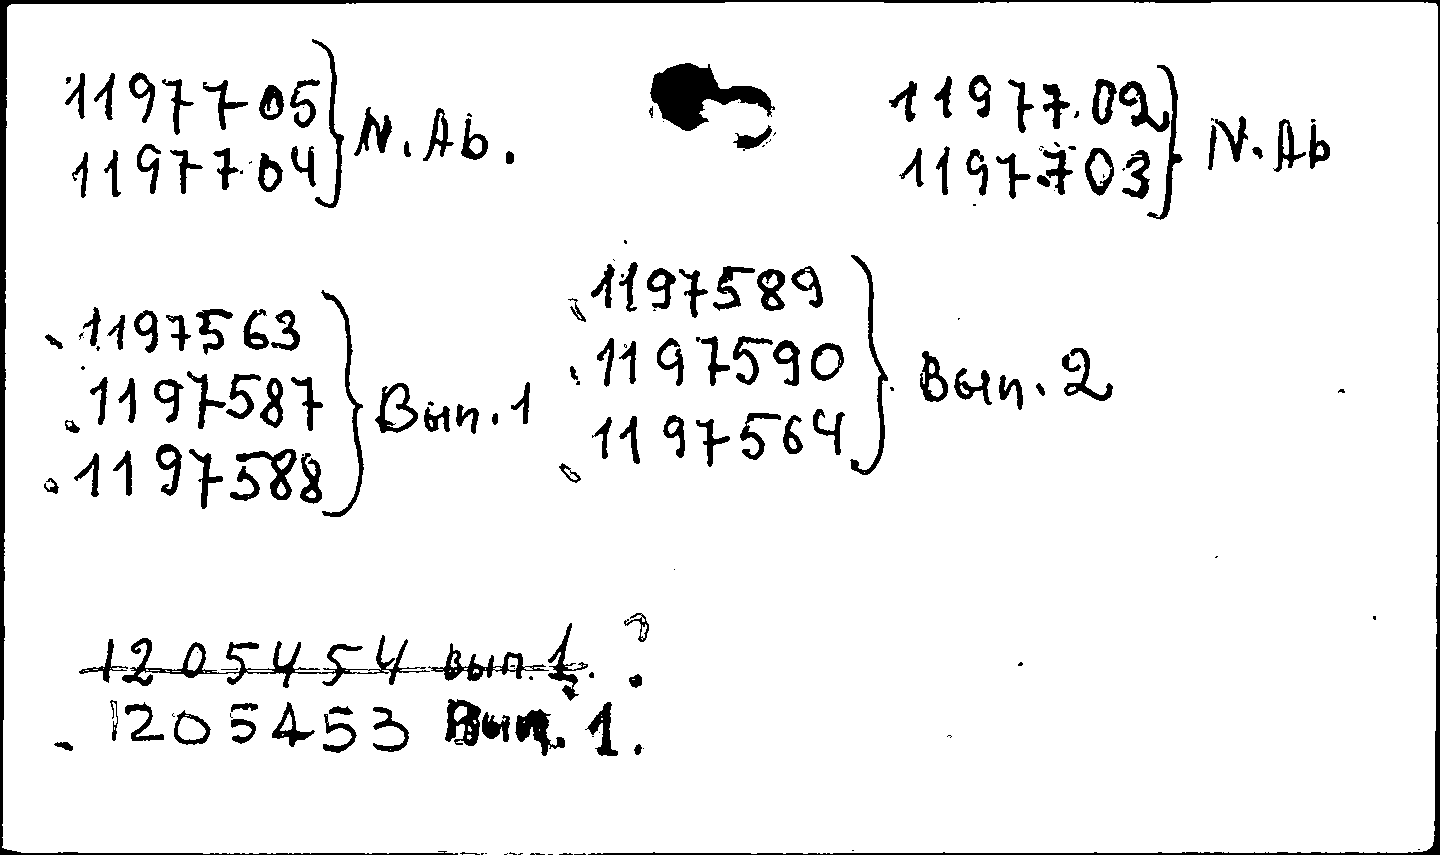 1197705
1197704 } N. Ab.
1197702
1197703 } N. Ab
1197563
1197587 } Вып. 1
1197588
1197589
1197590 } Вып. 2
1197564
1205454 вып. 1. ?
1205453 Вып. 1.